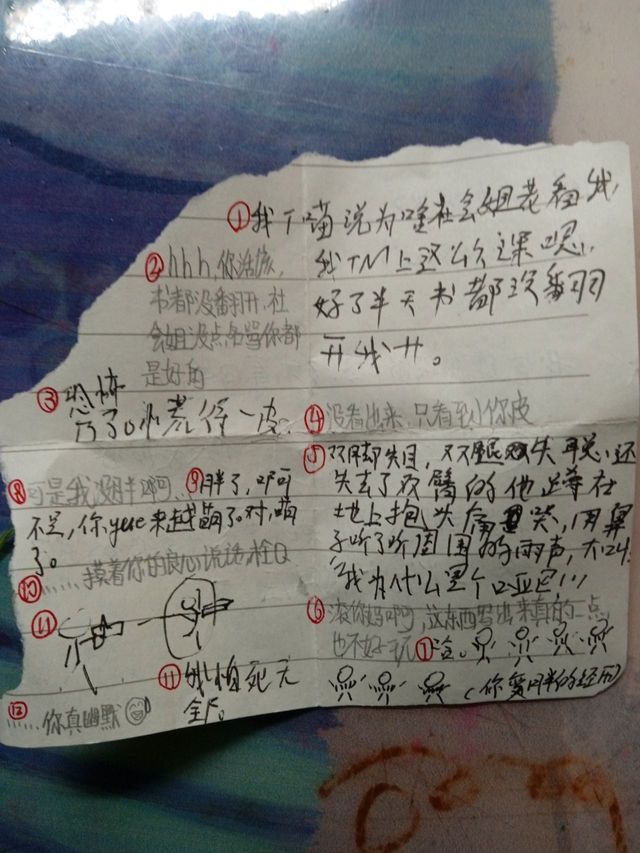 ①我丁喵说为啥社会姐老看我,
我TM上这么久课
好了半天书都没翻
开我廾。
②hhh,你活该,
书都没翻开,社
会姐没点名骂你都
是好的
③恐怖
了
慌得一皮
④没看出来,只看到你皮
⑤双脚 双目,双腿 双失 聪,还
失去了双臂的他蹲在
地上抱头痛哭,用鼻
子听了听周围的雨声,大叫
"我为什么是个哑巴!!!
⑥滚你妈啊,这东西写出来真的一点
也不好玩
⑦哈。
(你变胖的经历)
⑧可是我没胖啊
⑨胖了,
不是,你yue来越萌了。对,萌
了。
⑩……摸着你的良心说话,栓Q
⑪
⑪我怕死无
全尸。
⑫……你真幽默